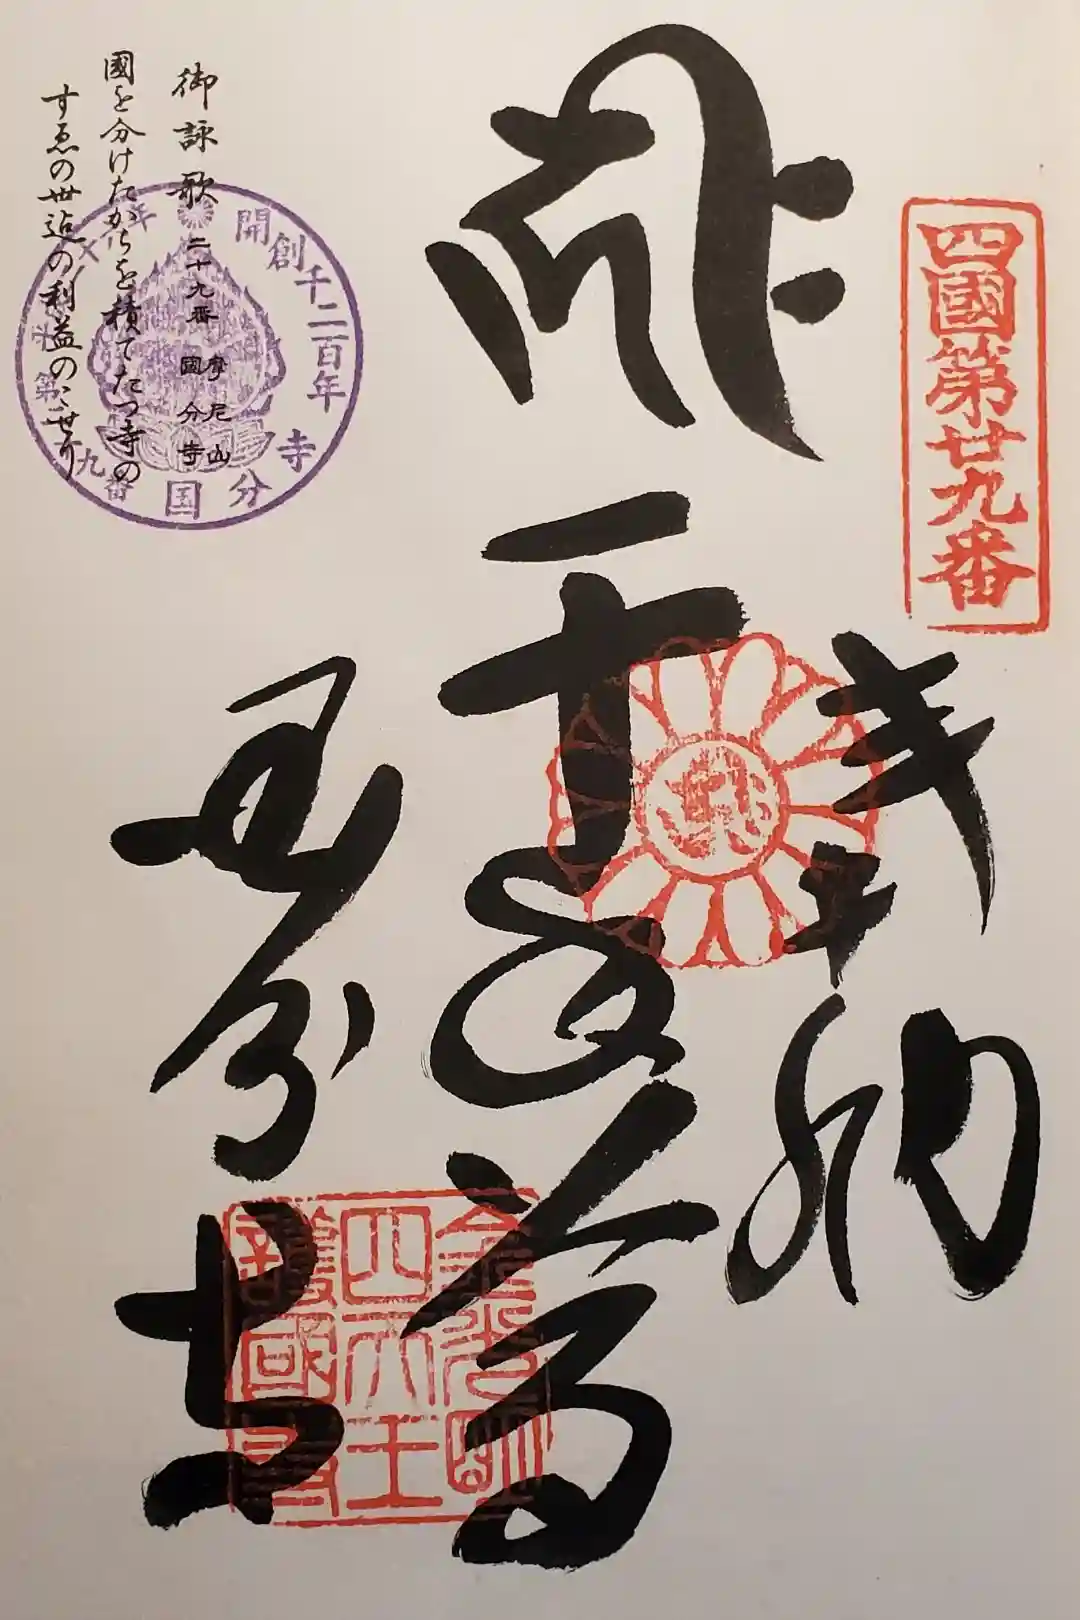 四國第廿九番
奉納
国分寺
金光明
四天王
護國寺
御詠歌 二十九番 摩尼山 國分寺
國を分けたからを積てたつ寺の
すゑの世迠の利益のこせり
開創千二百年
国分寺